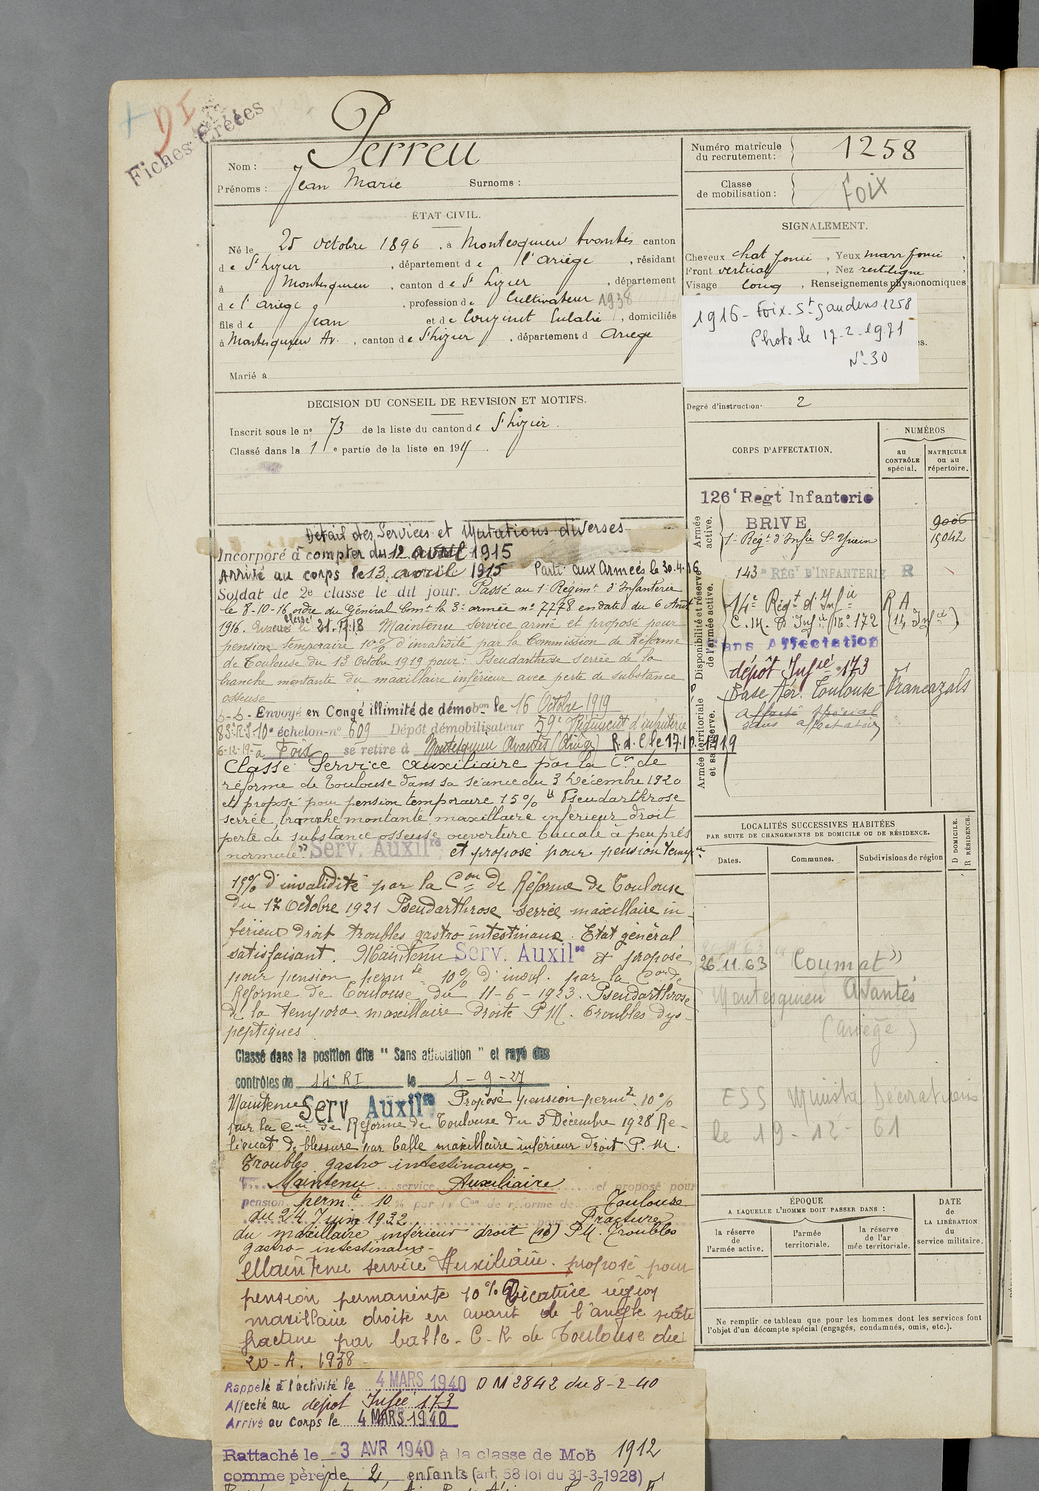 + DI
Fiches Créées
Perreu
Nom :
Prénoms : Jean Marie Surnoms :
ÉTAT CIVIL.
Né le 25 octobre 1896, à Montesquieu Avantès canton
de St Lizier, département de l'Ariège, résidant
à Montesquieu, canton de St Lizier, département
de l'Ariège, profession de Cultivateur 1938
fils de Jean et de Couzinet Eulalie, domiciliés
à Montesquieu Av., canton de St Lizier, département d Ariège
Marié à
DECISION DU CONSEIL DE REVISION ET MOTIFS.
Inscrit sous le n° 73 de la liste du canton de St Lizier.
Classé dans la 1e partie de la liste en 191
Détail des Services et Mutations diverses
Incorporé à compter du 12 avril 1915
Arrivé au corps le 13 avril 1915 Parti aux Armées le 30.4.16
Soldat de 2e classe le dit jour. Passé au 1 Régimt d'Infanterie
le 8-10-16, ordre du Général Comt la 3e armée n° 7778 en date du 6 Août
1916. Evacué blessé le 21.7.18 Maintenu Service armé et proposé pour
pension temporaire 10% d'invalidité par la Commission de Réforme
de Toulouse du 13 Octobre 1919 pour : Pseudarthrose serrée de la
branche montante du maxillaire inférieur avec perte de substance
osseuse
Envoyé en Congé illimité de démobon le 16 Octobre 1919
10e échelon n° 609 Dépôt démobilisateur 59e Régiment d'infanterie
6-12-19 à Foix se retire à Montesquieu Avantès (Ariège) R.d.C. le 17.10.1919
Classé Service auxiliaire par la Con de
réforme de Toulouse dans sa séance du 3 Décembre 1920
et proposé pour pension temporaire 15% "Pseudarthrose
serrée branche montante maxillaire inférieur droit
perte de substance osseuse ouverture buccale à peu près
normale" Serv. Auxilre et proposé pour pension tempre
15% d'invalidité par la Con de Réforme de Toulouse
du 17 Octobre 1921 Pseudarthrose serrée maxillaire in-
férieur droit troubles gastro intestinaux. Etat général
satisfaisant. Maintenu Serv. Auxilre et proposé
pour pension permte 10% d'inval. par la Con de
Réforme de Toulouse du 11-6-1923. Pseudarthrose
maxillaire droite P.M. troubles dys-
peptiques
Classé dans la position dite "Sans affectation" et rayé des
contrôles du 14e RI le 1-9-27
Maintenu Serv Auxilre Proposé pension permte 10%
par la Con de Réforme de Toulouse du 3 Décembre 1928 Re-
liquat de blessure par balle maxillaire inférieur droit P.M.
Troubles gastro intestinaux.
Maintenu service Auxiliaire et proposé pour
pension permte 10 % par la Con de réforme de Toulouse
du 24 Juin 1932 Fracture
du maxillaire inférieur droit P.M. Troubles
gastro-intestinaux-
Maintenu service Auxiliaire. proposé pour
pension permanente 10% Cicatrice région
maxillaire droite en avant de l'angle suite
fracture par balle. C.R. de Toulouse du
20-A. 1938
Rappelé à l'activité le 4 MARS 1940 DM 2842 du 8-2-40
Affecté au dépôt Infie 173
Arrivé au Corps le 4 MARS 1940
Rattaché le -3 AVR 1940 à la classe de Mob 1912
comme père de 2 enfants (art. 58 loi du 31-3-1928)
Numéro matricule du recrutement : 1258
Classe de mobilisation : Foix
SIGNALEMENT.
Cheveux chat foncé, Yeux marr foncé,
Front vertical, Nez rectiligne,
Visage long, Renseignements physionomiques
1916 - Foix. St Gaudens 1258
Photo le 17-2-1971
N° 30
Degré d'instruction : 2
CORPS D'AFFECTATION.
NUMÉROS
AU CONTRÔLE spécial.
MATRICULE ou au répertoire.
Armée active.
126e Regt Infanterie
BRIVE
9006
1 Régt d'Infie 15042
Disponibilité et réserve de l'armée active.
143e RÉGT D'INFANTERIE R
14e Régt d'Infie R A
C.M. d'Infie (16e) 172 (14 Infie)
Sans Affectation
dépôt Infie 173
Armée territoriale et sa réserve.
Base Aér. Toulouse Francazals
affecté spécial
sans affectation
LOCALITÉS SUCCESSIVES HABITÉES
PAR SUITE DE CHANGEMENTS DE DOMICILE OU DE RÉSIDENCE.
Dates.
Communes.
Subdivisions de région
D DOMICILE.
R RÉSIDENCE.
26.11.63 "Coumat"
Montesquieu Avantès
(Ariège)
ESS Ministre Décorations
le 19-12-61
ÉPOQUE
A LAQUELLE L'HOMME DOIT PASSER DANS :
DATE DE LA LIBÉRATION du service militaire.
la réserve de l'armée active.
l'armée territoriale.
la réserve de l'armée territoriale.
Ne remplir ce tableau que pour les hommes dont les services font
l'objet d'un décompte spécial (engagés, condamnés, omis, etc.).